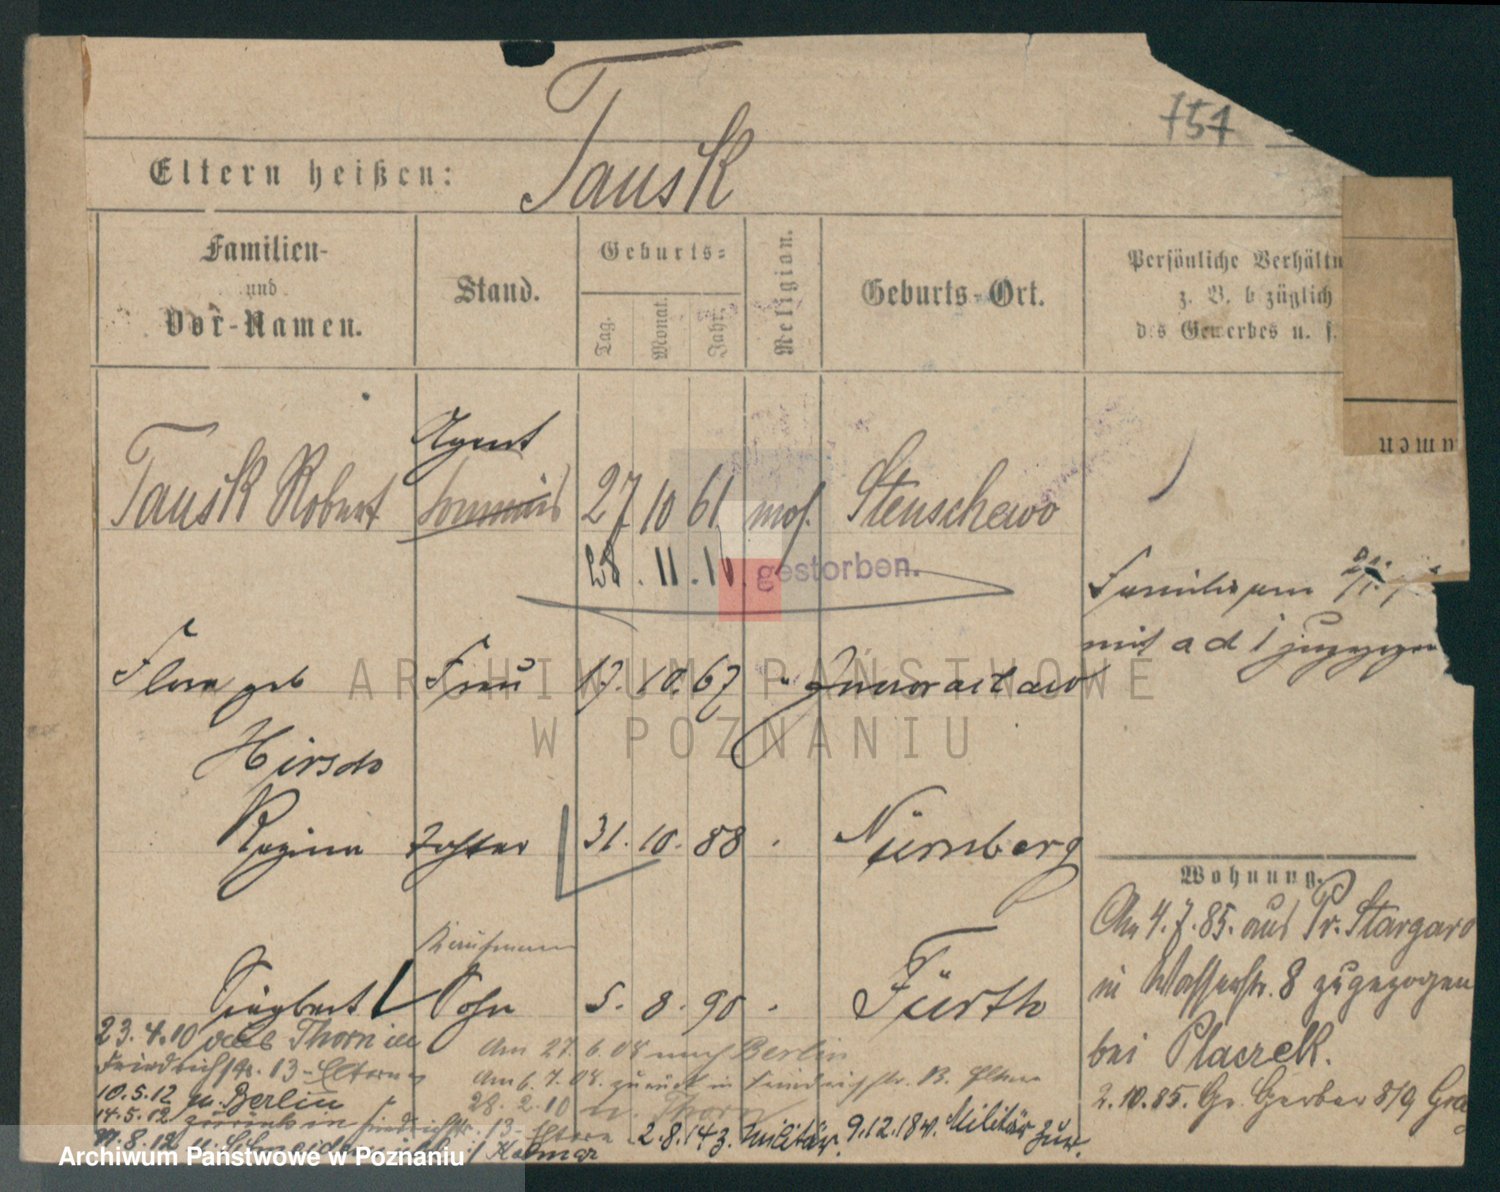 Tausk
757
Eltern heißen: Tausk
Familien-
und
Vor-Namen.
Stand.
Geburts-
Tag.
Monat.
Jahr.
Religion.
Geburts-Ort.
Persönliche Verhältn
z. B. bezüglich
des Gewerbes u. s.
amen
Agent
Tausk Robert Commis 27 10 61 mos. Stenschewo
28. 11. gestorben.
Familie am
mit a d 1 zugezogen
Flora geb Frau 17. 10. 67 " Inowrazlaw
Hirsch
Regina Tochter 31. 10. 88 Nürnberg
Kaufmann
Siegbert Sohn 5. 8. 90 Fürth
Wohnung.
Am 4.7.85. aus Pr. Stargard
in Wasserstr. 8 zugezogen
bei Placzek.
2.10.85. Gr. Gerber 8/9
23.4.10 aus Thorn in
Friedrichstr. 13 - Eltern
10.5.12 n. Berlin
14.5.12 zurück in Friedrichstr. 13 - Eltern
n. Schneidemühl
Kolmar
Am 27.6.08 nach Berlin
Am 6.7.08. zurück in Friedrichstr. 13. Eltern
28.2.10 n. Thorn
2.8.14 z. Militär. 9.12.18 v. Militär zur.
ARCHIWUM PAŃSTWOWE
W POZNANIU
Archiwum Państwowe w Poznaniu